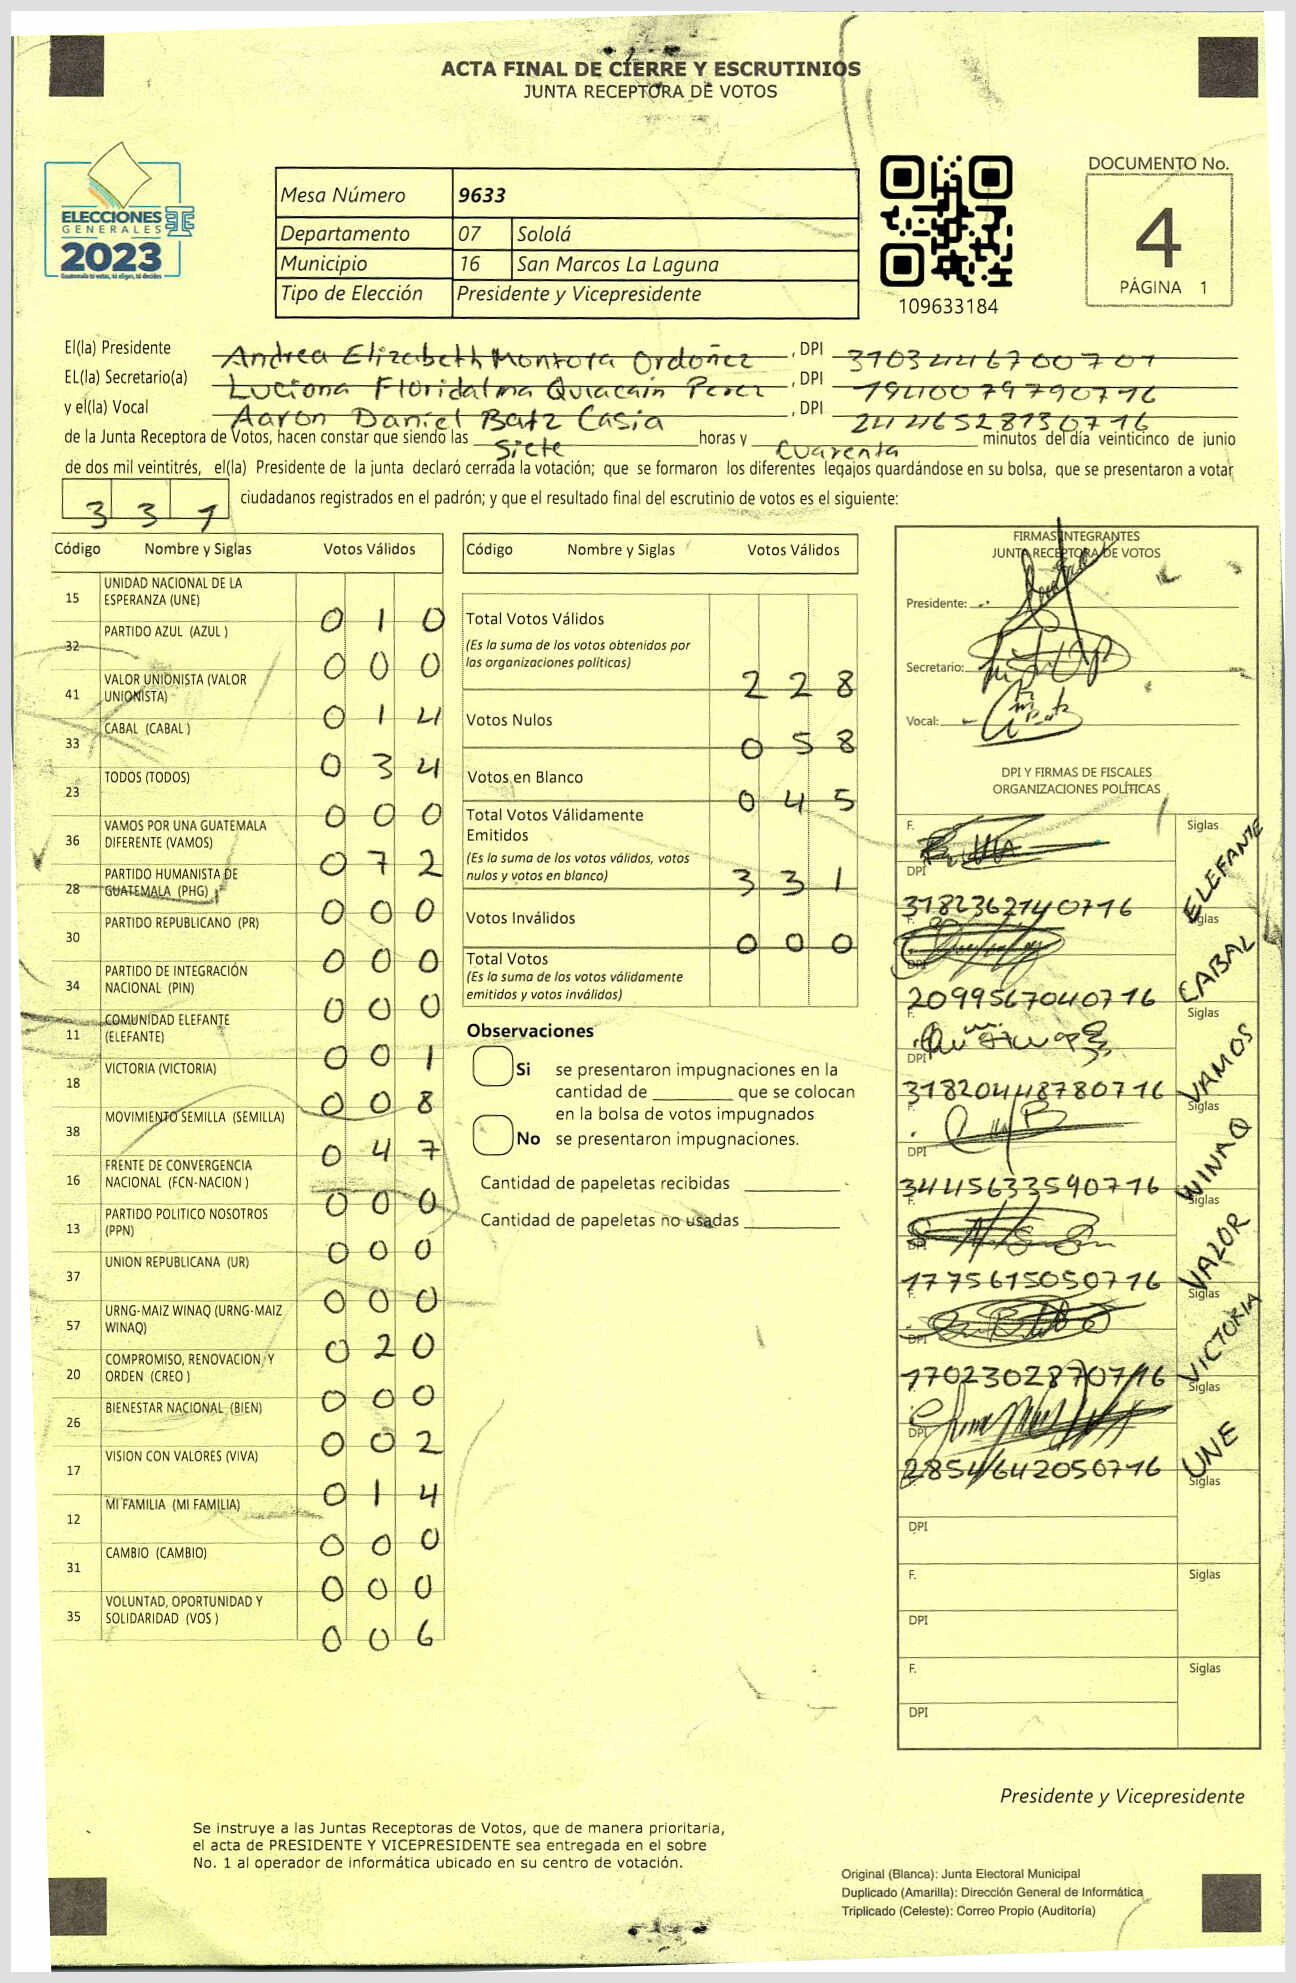 ACTA FINAL DE CIERRE Y ESCRUTINIOS
JUNTA RECEPTORA DE VOTOS
ELECCIONES
GENERALES
2023
Guatemala tú votas, tú eliges, tú decides
Mesa Número 9633
Departamento 07 Sololá
Municipio 16 San Marcos La Laguna
Tipo de Elección Presidente y Vicepresidente
109633184
DOCUMENTO No.
4
PÁGINA 1
El(la) Presidente Andrea Elizabeth Montoya Ordoñez, DPI 3103446700701
EL(la) Secretario(a) Luciona Floridalma Quiacain Perez, DPI 1940079790716
y el(la) Vocal Aaron Daniel Batz Casia, DPI 2446528130716
de la Junta Receptora de Votos, hacen constar que siendo las siete horas y cuarenta minutos del día veinticinco de junio
de dos mil veintitrés, el(la) Presidente de la junta declaró cerrada la votación; que se formaron los diferentes legajos quardándose en su bolsa, que se presentaron a votar
331 ciudadanos registrados en el padrón; y que el resultado final del escrutinio de votos es el siguiente:
Código Nombre y Siglas Votos Válidos
15 UNIDAD NACIONAL DE LA ESPERANZA (UNE) 0 1 0
32 PARTIDO AZUL (AZUL ) 0 0 0
41 VALOR UNIONISTA (VALOR UNIONISTA) 0 1 4
33 CABAL (CABAL ) 0 3 4
23 TODOS (TODOS) 0 0 0
36 VAMOS POR UNA GUATEMALA DIFERENTE (VAMOS) 0 7 2
28 PARTIDO HUMANISTA DE GUATEMALA (PHG) 0 0 0
30 PARTIDO REPUBLICANO (PR) 0 0 0
34 PARTIDO DE INTEGRACIÓN NACIONAL (PIN) 0 0 0
11 COMUNIDAD ELEFANTE (ELEFANTE) 0 0 1
18 VICTORIA (VICTORIA) 0 0 8
38 MOVIMIENTO SEMILLA (SEMILLA) 0 4 7
16 FRENTE DE CONVERGENCIA NACIONAL (FCN-NACION ) 0 0 0
13 PARTIDO POLITICO NOSOTROS (PPN) 0 0 0
37 UNION REPUBLICANA (UR) 0 0 0
57 URNG-MAIZ WINAQ (URNG-MAIZ WINAQ) 0 2 0
20 COMPROMISO, RENOVACION, Y ORDEN (CREO ) 0 0 0
26 BIENESTAR NACIONAL (BIEN) 0 0 2
17 VISION CON VALORES (VIVA) 0 1 4
12 MI FAMILIA (MI FAMILIA) 0 0 0
31 CAMBIO (CAMBIO) 0 0 0
35 VOLUNTAD, OPORTUNIDAD Y SOLIDARIDAD (VOS ) 0 0 6
Código Nombre y Siglas Votos Válidos
Total Votos Válidos
(Es la suma de los votos obtenidos por
las organizaciones políticas)
2 2 8
Votos Nulos
0 5 8
Votos en Blanco
0 4 5
Total Votos Válidamente
Emitidos
(Es la suma de los votos válidos, votos
nulos y votos en blanco)
3 3 1
Votos Inválidos
0 0 0
Total Votos
(Es la suma de los votos válidamente
emitidos y votos inválidos)
Observaciones
Si se presentaron impugnaciones en la
cantidad de ________ que se colocan
en la bolsa de votos impugnados
No se presentaron impugnaciones.
Cantidad de papeletas recibidas
Cantidad de papeletas no usadas
FIRMAS INTEGRANTES
JUNTA RECEPTORA DE VOTOS
Presidente:
Secretario:
Vocal:
DPI Y FIRMAS DE FISCALES
ORGANIZACIONES POLÍTICAS
F. Siglas
DPI 3182362140716 ELEFANTE
F. Siglas
DPI 2099567040716 CABAL
F. Siglas
DPI 31820448780716 VAMOS
F. Siglas
DPI 3444563359 0716 WINAQ
F. Siglas
DPI 1775615050716 VALOR
F. Siglas
DPI 1702302870716 VICTORIA
F. Siglas
DPI 2854642050716 UNE
Siglas
DPI
F. Siglas
DPI
F. Siglas
DPI
Presidente y Vicepresidente
Se instruye a las Juntas Receptoras de Votos, que de manera prioritaria,
el acta de PRESIDENTE Y VICEPRESIDENTE sea entregada en el sobre
No. 1 al operador de informática ubicado en su centro de votación.
Original (Blanca): Junta Electoral Municipal
Duplicado (Amarilla): Dirección General de Informática
Triplicado (Celeste): Correo Propio (Auditoría)